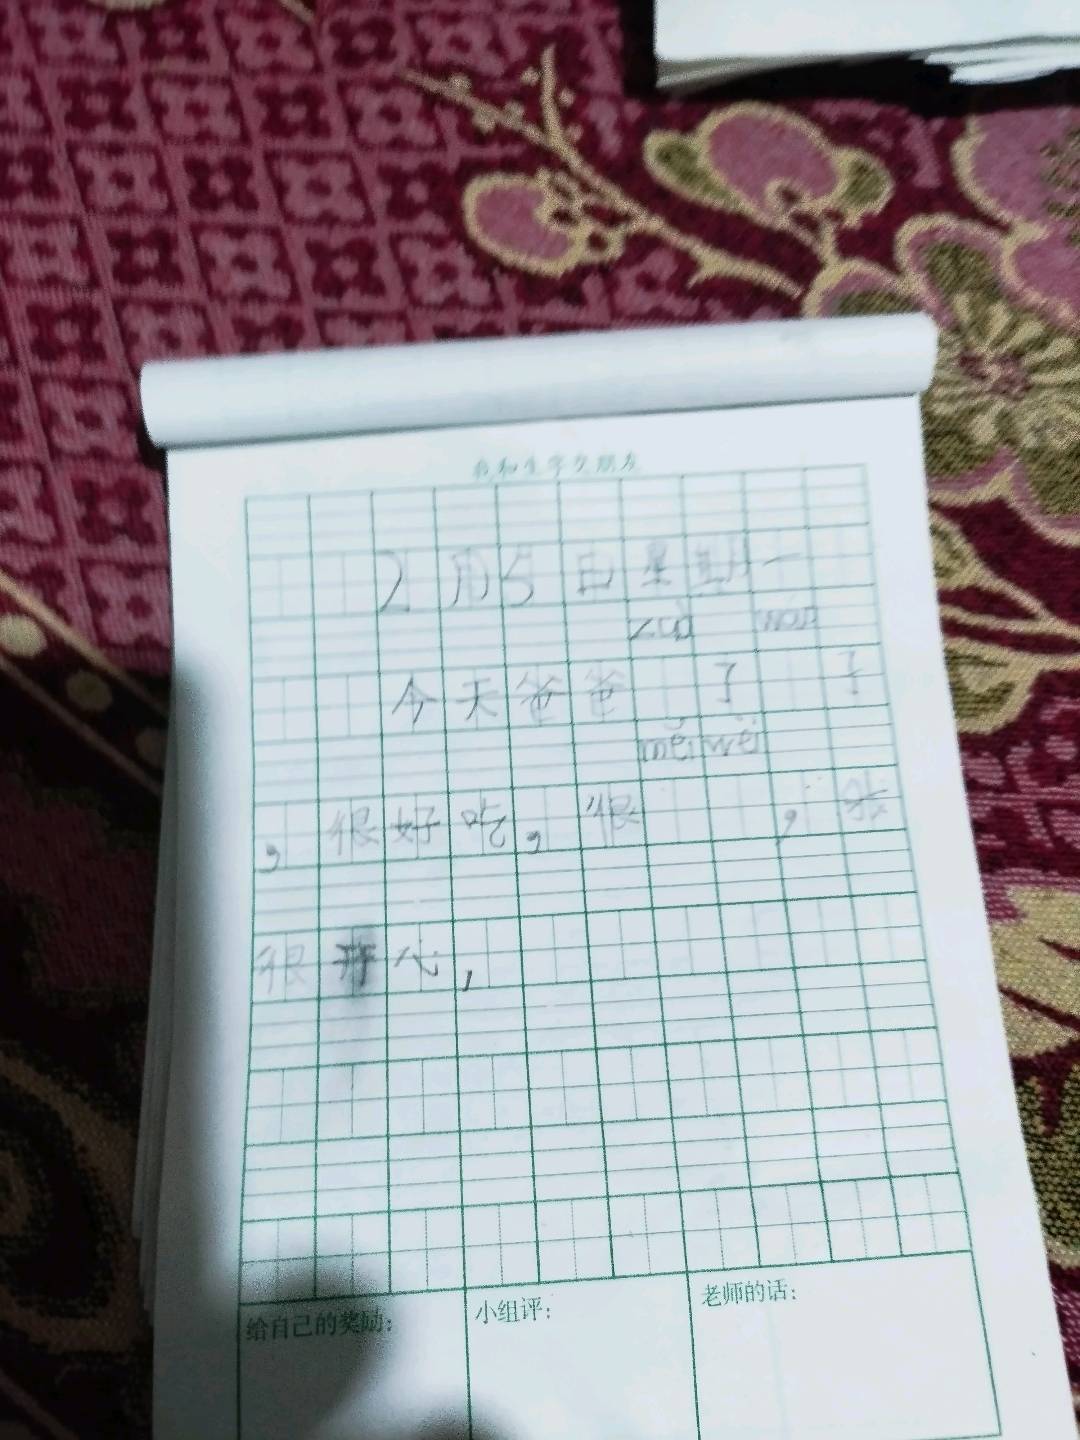 我和生字交朋友
2月5日星期一
zuò
今天爸爸 了 了
měi wèi
,很好吃,很 ,我
很开心,
给自己的奖励:
小组评:
老师的话: